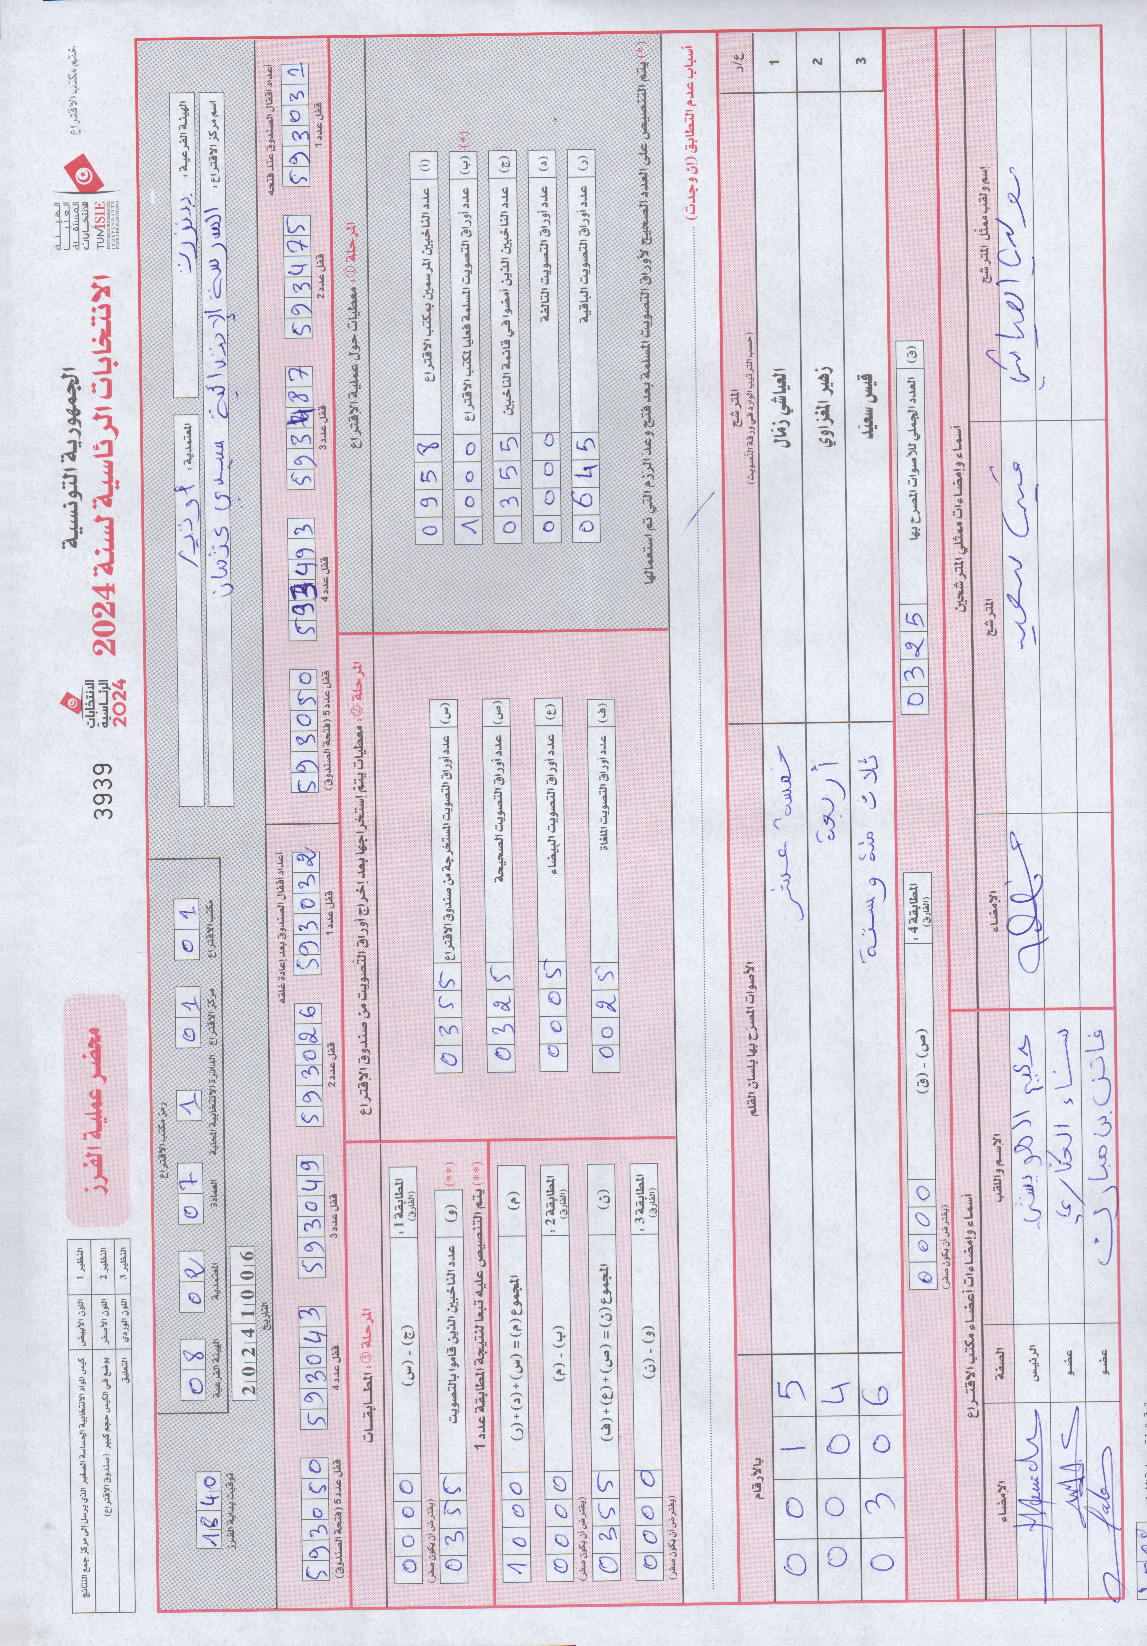 الجمهورية التونسية
الانتخابات الرئاسية لسنة 2024
ختم مكتب الاقتراع
TUNISIE
الانتخابات
الرئاسية
2024
3939
محضر عملية الفرز
النظير 1 اللون الأبيض
النظير 2 اللون الأصفر
النظير 3 اللون الوردي التعليق
الهيئة الفرعية: بنزرت
المعتمدية:
اسم مركز الاقتراع: المدرسة الإبتدائية سيدي عثمان
رمز مكتب الاقتراع
الهيئة الفرعية 08
المعتمدية 02
العمادة 07
الدائرة الانتخابية المحلية 1
مركز الاقتراع 01
مكتب الاقتراع 01
التاريخ 20241006
توقيت بداية الفرز 1840
أعداد أقفال الصندوق عند فتحه
593031 قفل عدد 1
593475 قفل عدد 2
593487 قفل عدد 3
593493 قفل عدد 4
593050 قفل عدد 5 (فتحة الصندوق)
أعداد أقفال الصندوق بعد إعادة غلقه
593032 قفل عدد 1
593026 قفل عدد 2
593049 قفل عدد 3
593043 قفل عدد 4
593050 قفل عدد 5 (فتحة الصندوق)
المرحلة ①: معطيات حول عملية الاقتراع
(أ) عدد الناخبين المرسمين بمكتب الاقتراع 0958
(ب) عدد أوراق التصويت المسلمة فعليا لمكتب الاقتراع 1000 (*)
(ج) عدد الناخبين الذين أمضوا في قائمة الناخبين 0355
(د) عدد أوراق التصويت التالفة 0000
(ر) عدد أوراق التصويت الباقية 0645
(*) يتم التنصيص على العدد الصحيح لأوراق التصويت المسلمة بعد فتح وعد الرزم التي تم استعمالها
المرحلة ②: معطيات يتم استخراجها بعد إخراج أوراق التصويت من صندوق الاقتراع
(س) عدد أوراق التصويت المستخرجة من صندوق الاقتراع 0355
(ص) عدد أوراق التصويت الصحيحة 0325
(ع) عدد أوراق التصويت البيضاء 0005
(ف) عدد أوراق التصويت الملغاة 0025
المرحلة ③: المطابقات
المطابقة 1: (الفارق) (ج) - (س) 0000 (يفترض أن يكون صفر)
(**) (و) عدد الناخبين الذين قاموا بالتصويت 0355
(**) يتم التنصيص عليه تبعا لنتيجة المطابقة عدد 1
(م) المجموع (م) = (س) + (د) + (ر) 1000
المطابقة 2: (الفارق) (ب) - (م) 0000 (يفترض أن يكون صفر)
(ن) المجموع (ن) = (ص) + (ع) + (ف) 0355
المطابقة 3: (الفارق) (و) - (ن) 0000 (يفترض أن يكون صفر)
أسباب عدم التطابق (إن وجدت)
ع/د المترشح (حسب الترتيب الوارد في ورقة التصويت) الأصوات المصرح بها بلسان القلم بالأرقام
1 العياشي زمال خمسة عشر 0015
2 زهير المغزاوي أربعة 0004
3 قيس سعيد ثلاث مئة وستة 0306
(ق) العدد الجملي للأصوات المصرح بها 0325
المطابقة 4: (الفارق) (ص) - (ق) 0000 (يفترض أن يكون صفر)
أسماء وإمضاءات ممثلي المترشحين
اسم ولقب ممثل المترشح المترشح الإمضاء
قيس سعيد
أسماء وإمضاءات أعضاء مكتب الاقتراع
الاسم واللقب الصفة الإمضاء
الرئيس
سناء عضو
فاتن بن مبارك عضو